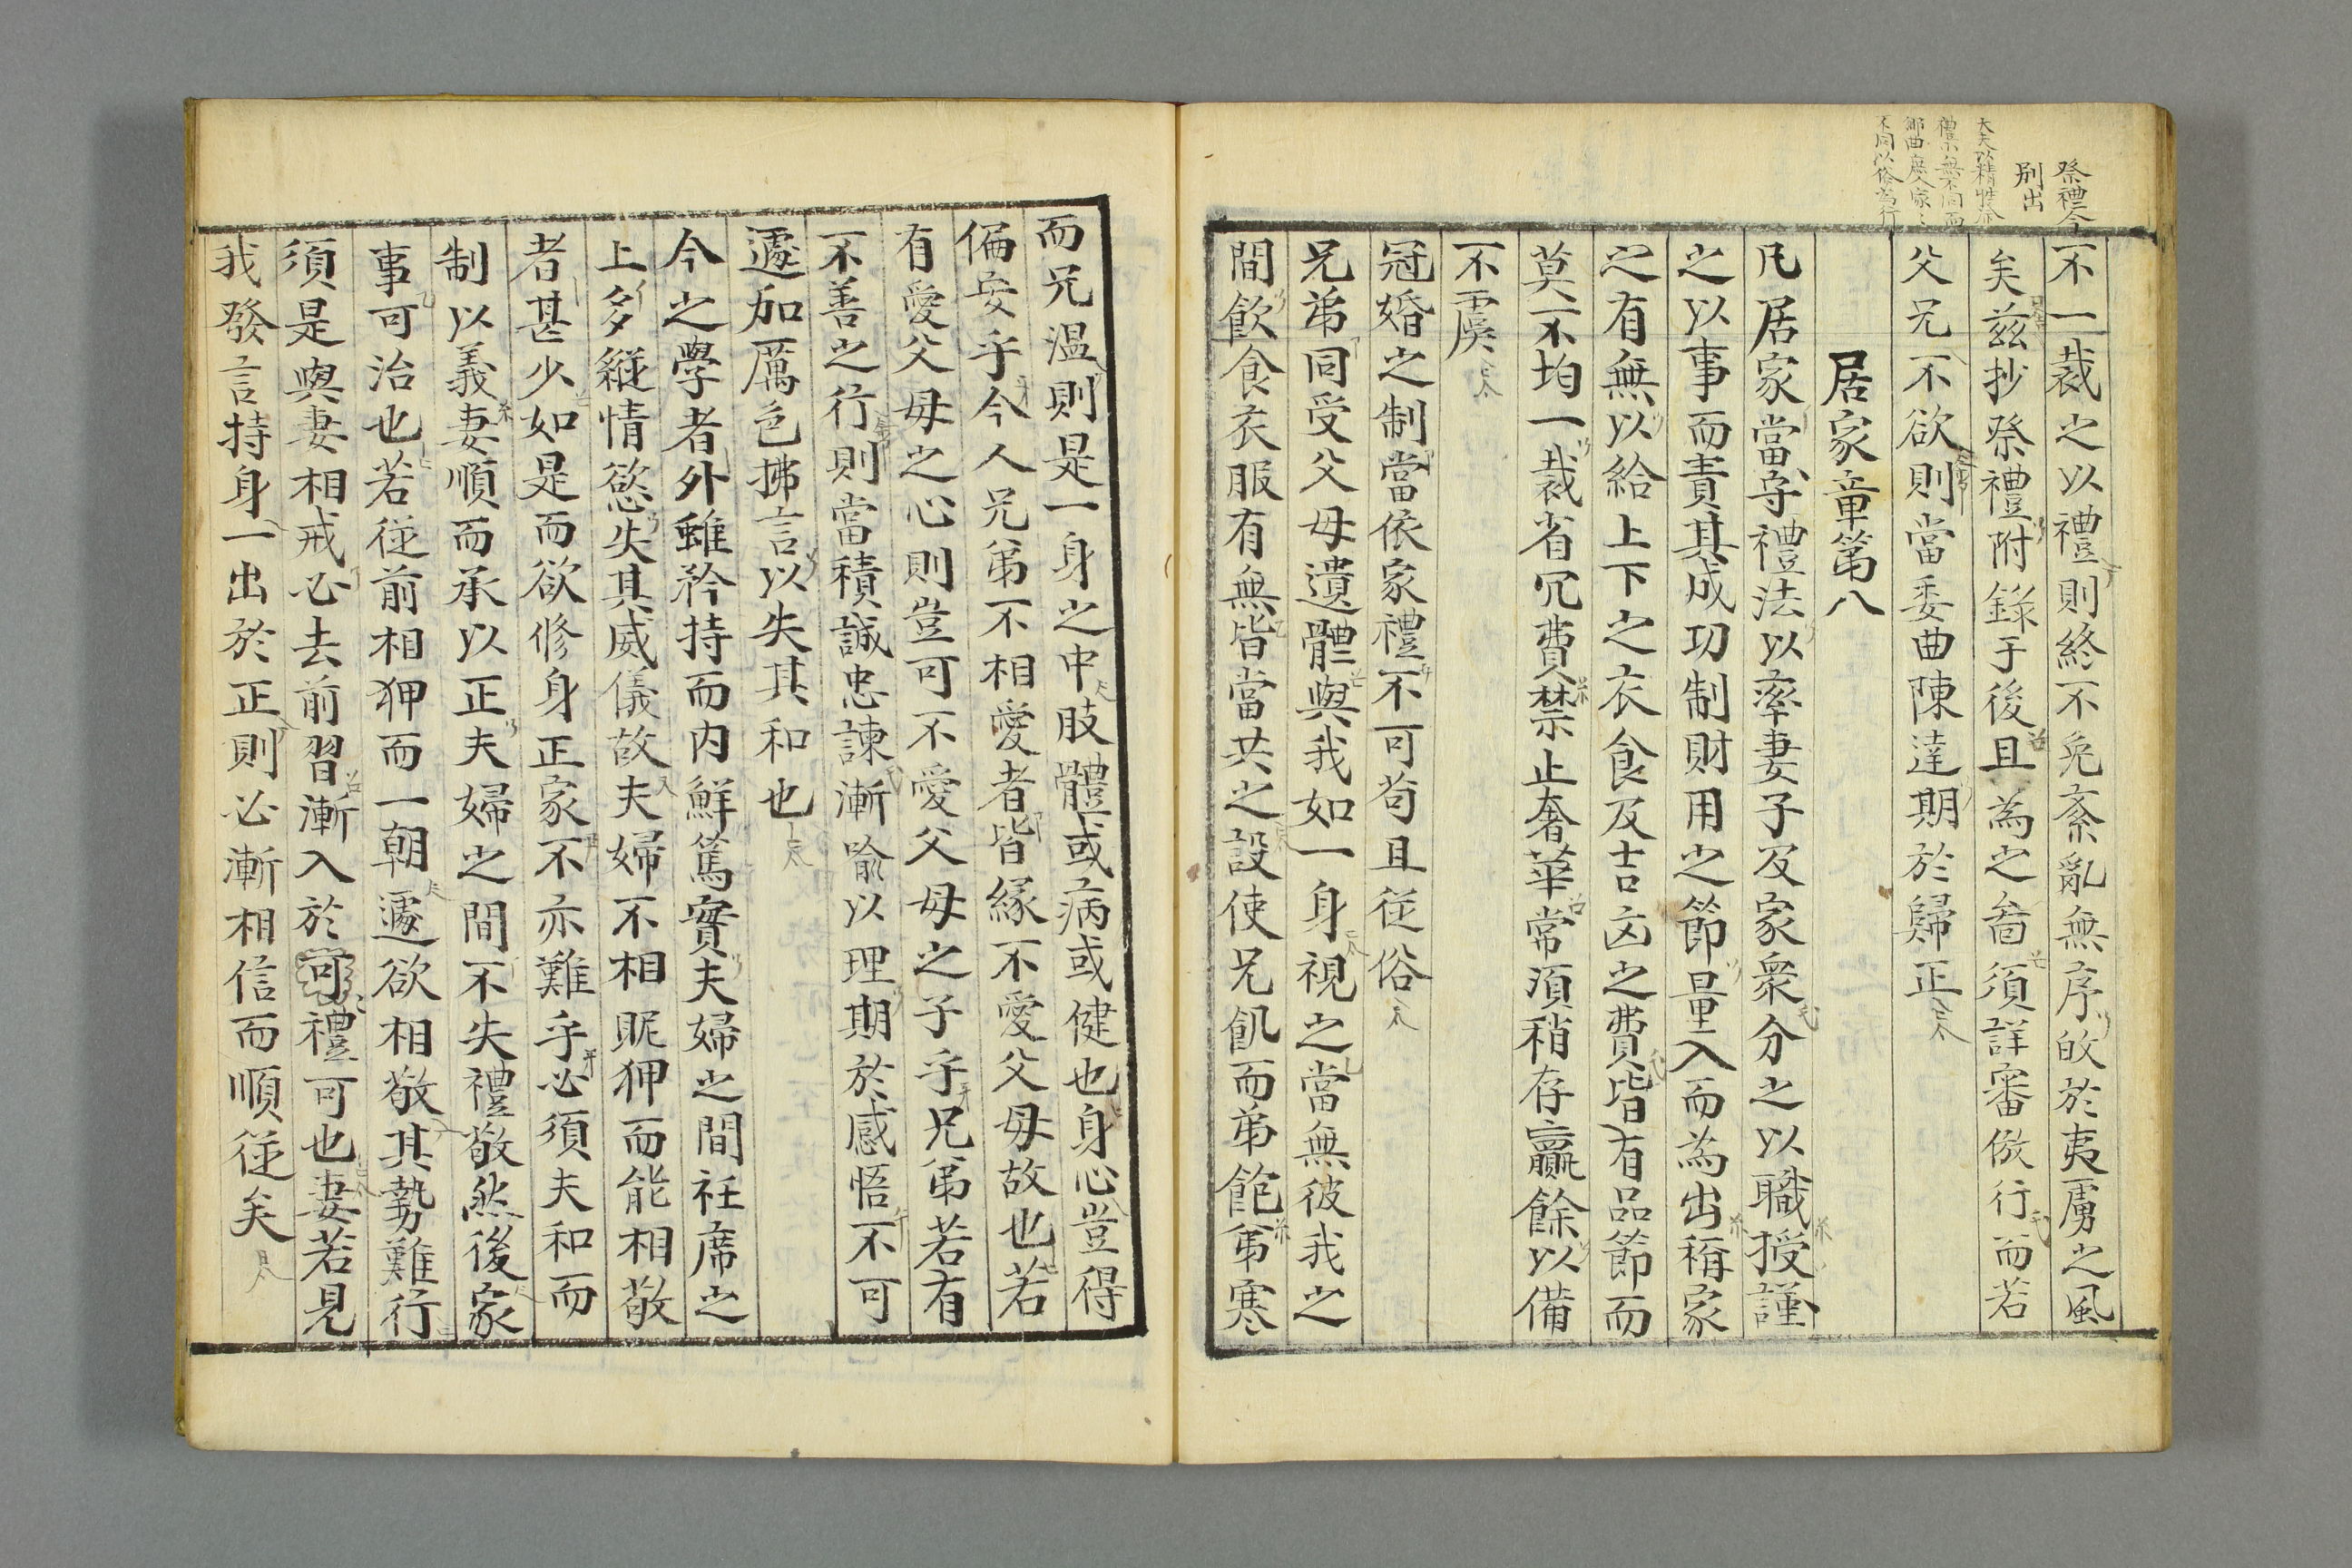 祭禮今
別出
不一裁之以禮則終不免紊亂無序故於夷虜之風
矣玆抄祭禮附錄于後且爲之啚須詳審倣行而若
父兄不欲則當委曲陳達期於歸正
居家章第八
凡居家當守禮法以率妻子及家衆分之以職授謹
之以事而責其成功制財用之節量入而爲出稱家
之有無以給上下之衣食及吉凶之費皆有品節而
莫不均一裁省冗費禁止奢華常須稍存贏餘以備
不虞
冠婚之制當依家禮不可苟且從俗
兄弟同受父母遺體與我如一身視之當無彼我之
間飮食衣服有無皆當共之設使兄飢而弟飽弟寒
而兄溫則是一身之中肢體或病或健也身心豈得
偏安乎今人兄弟不相愛者皆緣不愛父母故也若
有愛父母之心則豈可不愛父母之子乎兄弟若有
不善之行則當積誠忠諫漸喩以理期於感悟不可
遽加厲色拂言以失其和也
今之學者外雖矜持而內鮮篤實夫婦之間衽席之
上多縱情慾失其威儀故夫婦不相昵狎而能相敬
者甚少如是而欲修身正家不亦難乎必須夫和而
制以義妻順而承以正夫婦之間不失禮敬然後家
事可治也若從前相狎而一朝遽欲相敬其勢難行
須是與妻相戒必去前習漸入於可禮可也妻若見
我發言持身一出於正則必漸相信而順從矣